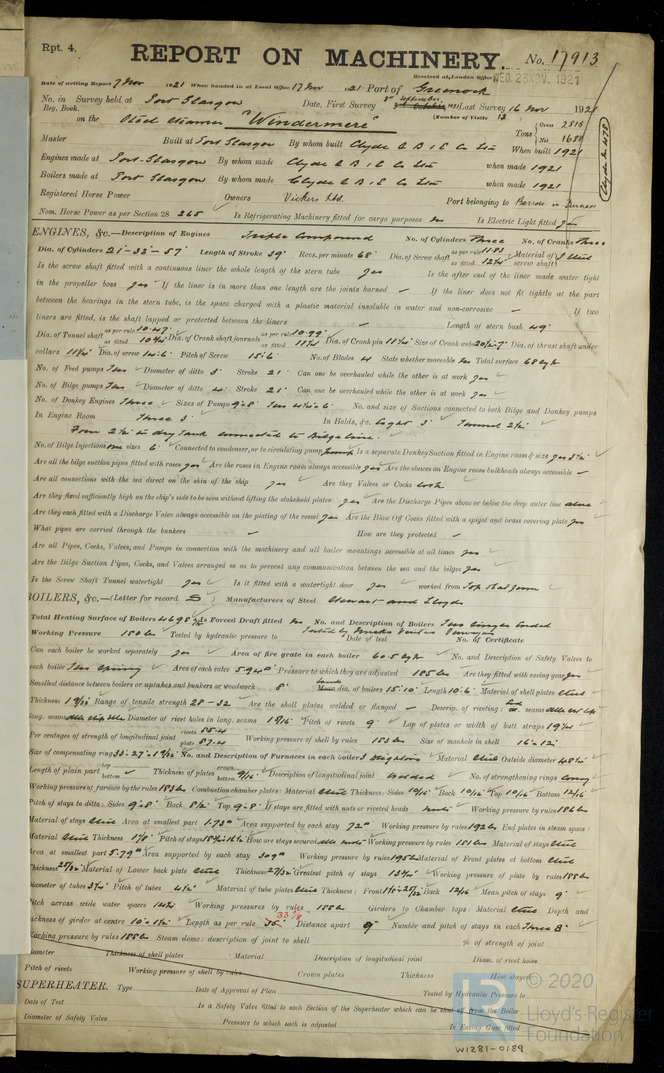 Rpt. 4.
REPORT ON MACHINERY.
No. 17913
Received at London Office WED. 23 NOV. 1921
Date of writing Report 7 Nov 1921 When handed in at Local Office 17 Nov 1921 Port of Greenock
No. in Survey held at Port Glasgow Date, First Survey September, 1921 Last Survey 16 Nov 1921
Reg. Book.
(Number of Visits 13
on the Steel Steamer "Windermere"
Tons { Gross 2815
Net 1688
Master Built at Port Glasgow By whom built Clyde S B & E Co Ltd When built 1921
Engines made at Port-Glasgow By whom made Clyde S B & E Co Ltd when made 1921
Boilers made at Port Glasgow By whom made Clyde S B & E Co Ltd when made 1921
Registered Horse Power Owners Vickers Ltd. Port belonging to Barrow in Furness
Nom. Horse Power as per Section 28 265 Is Refrigerating Machinery fitted for cargo purposes no Is Electric Light fitted yes
ENGINES, &c.—Description of Engines Triple Compound No. of Cylinders Three No. of Cranks Three
Dia. of Cylinders 21-33-57 Length of Stroke 39" Revs. per minute 68 Dia. of Screw shaft as per rule 11.83 as fitted 12 1/4 Material of screw shaft Steel
Is the screw shaft fitted with a continuous liner the whole length of the stern tube yes Is the after end of the liner made water tight
in the propeller boss yes If the liner is in more than one length are the joints burned If the liner does not fit tightly at the part
between the bearings in the stern tube, is the space charged with a plastic material insoluble in water and non-corrosive If two
liners are fitted, is the shaft lapped or protected between the liners Length of stern bush 49"
Dia. of Tunnel shaft as per rule 10.47 as fitted 10 3/4 Dia. of Crank shaft journals as per rule 10.99 as fitted 11 1/4 Dia. of Crank pin 11 1/4 Size of Crank webs Dia. of thrust shaft under
collars 11 1/4 Dia. of screw 14-6 Pitch of Screw 15-6 No. of Blades 4 State whether moveable no Total surface 68 sq ft
No. of Feed pumps Two Diameter of ditto 3" Stroke 21" Can one be overhauled while the other is at work yes
No. of Bilge pumps Two Diameter of ditto 4" Stroke 21" Can one be overhauled while the other is at work yes
No. of Donkey Engines Three Sizes of Pumps No. and size of Suctions connected to both Bilge and Donkey pumps
In Engine Room Three 3" In Holds, &c. Eight 3" Tunnel 2 1/2"
Four 2 1/2" to dry tank connected to Bilge line.
No. of Bilge Injections one sizes 6" Connected to condenser, or to circulating pump pump Is a separate Donkey Suction fitted in Engine room & size yes 3 1/2"
Are all the bilge suction pipes fitted with roses yes Are the roses in Engine room always accessible yes Are the sluices on Engine room bulkheads always accessible
Are all connections with the sea direct on the skin of the ship yes Are they Valves or Cocks both
Are they fixed sufficiently high on the ship's side to be seen without lifting the stokehold plates yes Are the Discharge Pipes above or below the deep water line above
Are they each fitted with a Discharge Valve always accessible on the plating of the vessel yes Are the Blow Off Cocks fitted with a spigot and brass covering plate yes
What pipes are carried through the bunkers How are they protected
Are all Pipes, Cocks, Valves, and Pumps in connection with the machinery and all boiler mountings accessible at all times yes
Are the Bilge Suction Pipes, Cocks, and Valves arranged so as to prevent any communication between the sea and the bilges yes
Is the Screw Shaft Tunnel watertight yes Is it fitted with a watertight door yes worked from Top Platform
BOILERS, &c.—(Letter for record S) Manufacturers of Steel Stewart and Lloyds
Total Heating Surface of Boilers 4698 Is Forced Draft fitted no No. and Description of Boilers Two single Ended
Working Pressure 180 lbs Tested by hydraulic pressure to Tested by Bureau Veritas Surveyor Date of test No. of Certificate
Can each boiler be worked separately yes Area of fire grate in each boiler 60.5 sq ft No. and Description of Safety Valves to
each boiler Two Spring Area of each valve 5.94" Pressure to which they are adjusted 185 lbs Are they fitted with easing gear yes
Smallest distance between boilers or uptakes and bunkers or woodwork 8" dia. of boilers 15-10 Length 10-6 Material of shell plates Steel
Thickness Range of tensile strength 28-32 Are the shell plates welded or flanged Descrip. of riveting: cir. seams
long. seams Diameter of rivet holes in long. seams 1 9/16" Pitch of rivets 9" Lap of plates or width of butt straps
Per centages of strength of longitudinal joint rivets 85.4 plate 87.4 Working pressure of shell by rules 183 lbs Size of manhole in shell 16-12
Size of compensating ring No. and Description of Furnaces in each boiler 3 Deighton Material Steel Outside diameter 48 1/2
Length of plain part top bottom Thickness of plates crown bottom 9/16 Description of longitudinal joint Welded No. of strengthening rings
Working pressure of furnace by the rules 183 lbs Combustion chamber plates: Material Steel Thickness: Sides Back Top Bottom
Pitch of stays to ditto: Sides 9-8 Back Top 9-8 If stays are fitted with nuts or riveted heads nuts Working pressure by rules 186 lbs
Material of stays Steel Area at smallest part 1.73 Area supported by each stay 72 Working pressure by rules 192 lbs End plates in steam space:
Material Steel Thickness 1 1/8 Pitch of stays How are stays secured Working pressure by rules 181 lbs Material of stays Steel
Area at smallest part 5.79 Area supported by each stay 309 Working pressure by rules 195 lbs Material of Front plates at bottom Steel
Thickness 27/32 Material of Lower back plate Steel Thickness 27/32 Greatest pitch of stays 13 1/2 Working pressure of plate by rules 185 lbs
Diameter of tubes 3 1/4 Pitch of tubes 4 1/2 Material of tube plates Steel Thickness: Front Back 12/16 Mean pitch of stays 9"
Pitch across wide water spaces 14 1/2 Working pressures by rules 185 lbs Girders to Chamber tops: Material Steel Depth and
thickness of girder at centre Length as per rule 33 1/8 Distance apart 9" Number and pitch of stays in each Three 8"
Working pressure by rules 185 lbs Steam dome: description of joint to shell % of strength of joint
Diameter Thickness of shell plates Material Description of longitudinal joint Diam. of rivet holes
Pitch of rivets Working pressure of shell by rules Crown plates Thickness How stayed
SUPERHEATER. Type Date of Approval of Plan Tested by Hydraulic Pressure to
Date of Test Is a Safety Valve fitted to each Section of the Superheater which can be shut off from the Boiler
Diameter of Safety Valve Pressure to which each is adjusted Is Easing Gear fitted
© 2020
Lloyd's Register
Foundation
W1281-0189